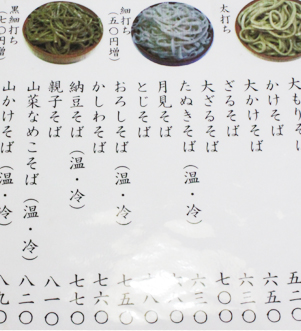 太打ち
細打ち
(五〇円増)
黒細打ち
(七〇円増)
かけそば
大かけそば
ざるそば
大ざるそば
たぬきそば(温・冷)
月見そば
とじそば
おろしそば(温・冷)
かしわそば
納豆そば(温・冷)
親子そば
山菜なめこそば(温・冷)
山かけそば(温・冷)
六五〇
七〇〇
六三〇
七五〇
七六〇
七七〇
八一〇
八二〇
八九〇